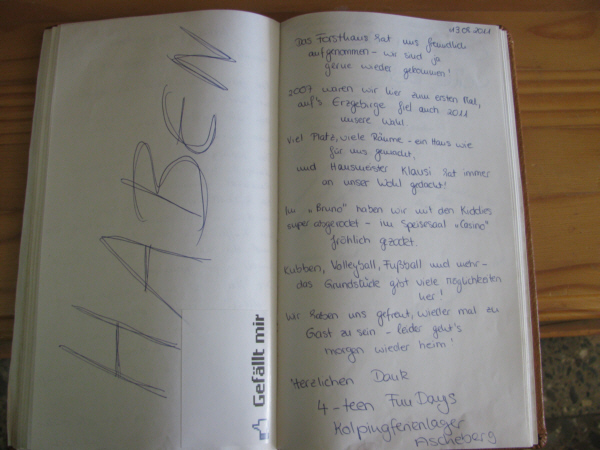 HABEN
Gefällt mir
13.08.2011
Das Forsthaus hat uns freundlich
aufgenommen - wir sind ja
gerne wieder gekommen!
2007 waren wir hier zum ersten Mal,
auf's Erzgebirge fiel auch 2011
unsere Wahl.
Viel Platz, viele Räume - ein Haus wie
für uns gemacht,
und Hausmeister Klausi hat immer
an unser Wohl gedacht!
Im "Bruno" haben wir mit den Kiddies
super abgerockt - im Speisesaal "Casino"
fröhlich gezockt.
Kubben, Volleyball, Fußball und mehr -
das Grundstück gibt viele Möglichkeiten
her!
Wir haben uns gefreut, wieder mal zu
Gast zu sein - leider geht's
morgen wieder heim!
Herzlichen Dank
4-teen Fun Days
Kolpingferienlager
Ascheberg